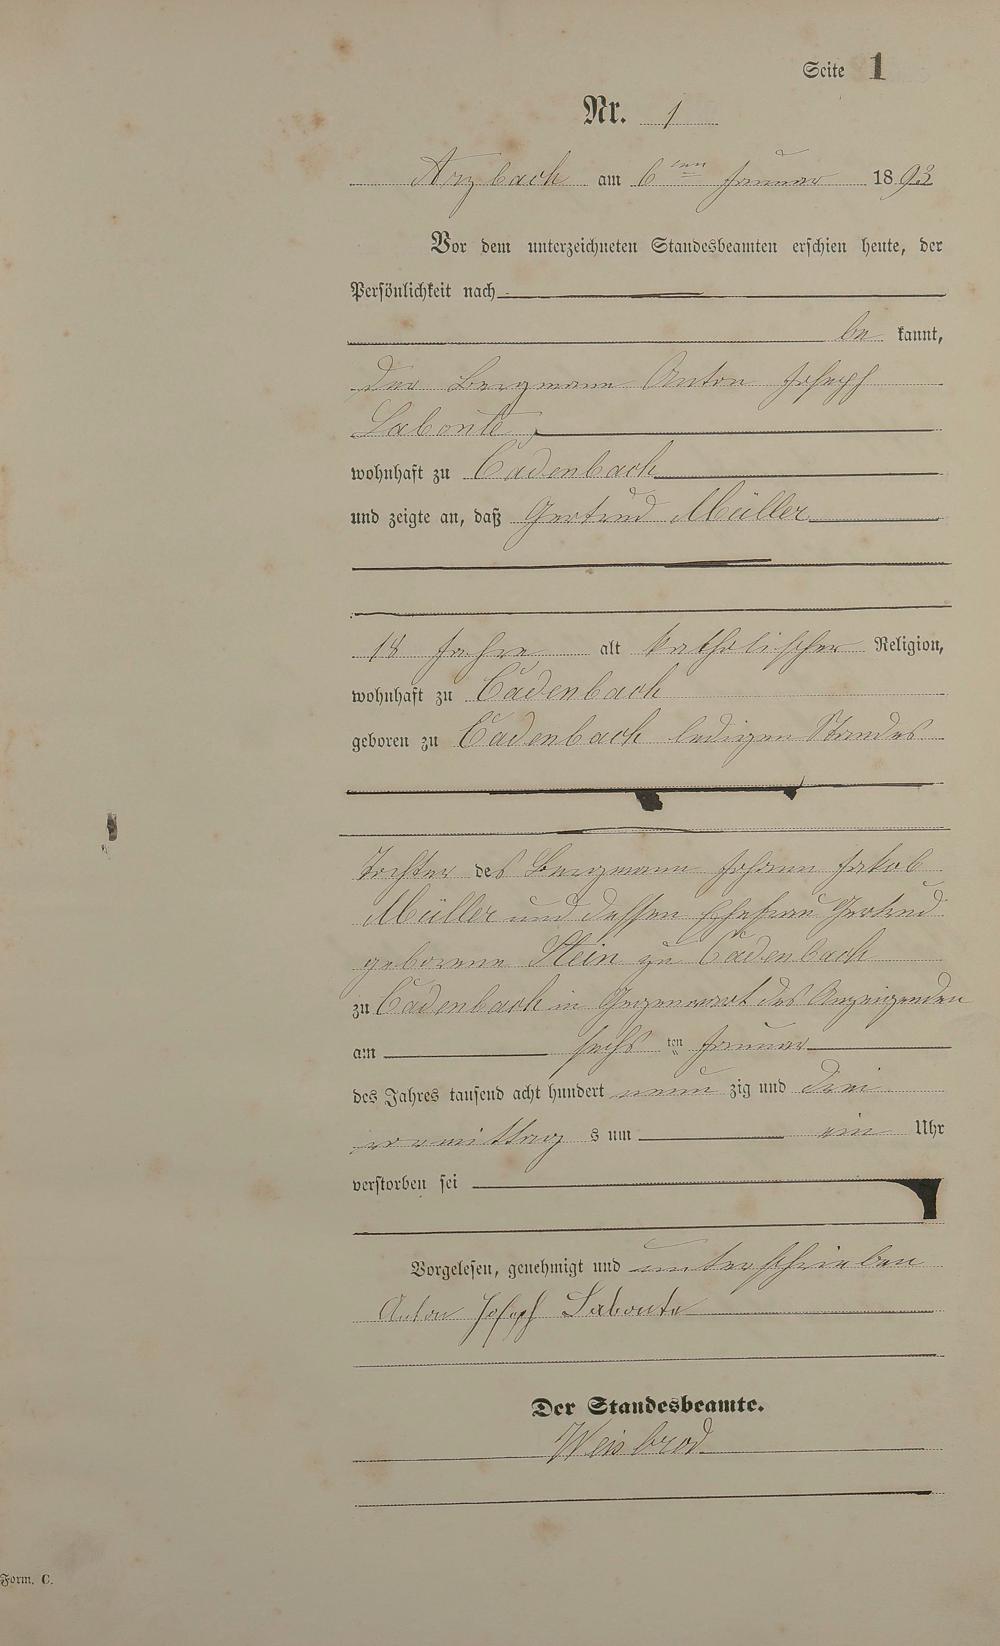 Seite 1
Nr. 1
Arzbach am 6ten Januar 1893
Vor dem unterzeichneten Standesbeamten erschien heute, der
Persönlichkeit nach
be kannt,
der Bergmann Anton Joseph
Labonte,
wohnhaft zu Cadenbach
und zeigte an, daß Gertrud Müller
18 Jahre alt katholischer Religion,
wohnhaft zu Cadenbach
geboren zu Cadenbach ledigen Standes
Tochter des Bergmann Johann Jakob
Müller und dessen Ehefrau Gertrud
geborene Stein zu Cadenbach
zu Cadenbach in Gegenwart des Anzeigenden
am sechs ten Januar
des Jahres tausend acht hundert neun zig und drei
vormittag s um ein Uhr
verstorben sei
Vorgelesen, genehmigt und unterschrieben
Anton Joseph Labonte
Der Standesbeamte.
Weisbrod
Form. C.